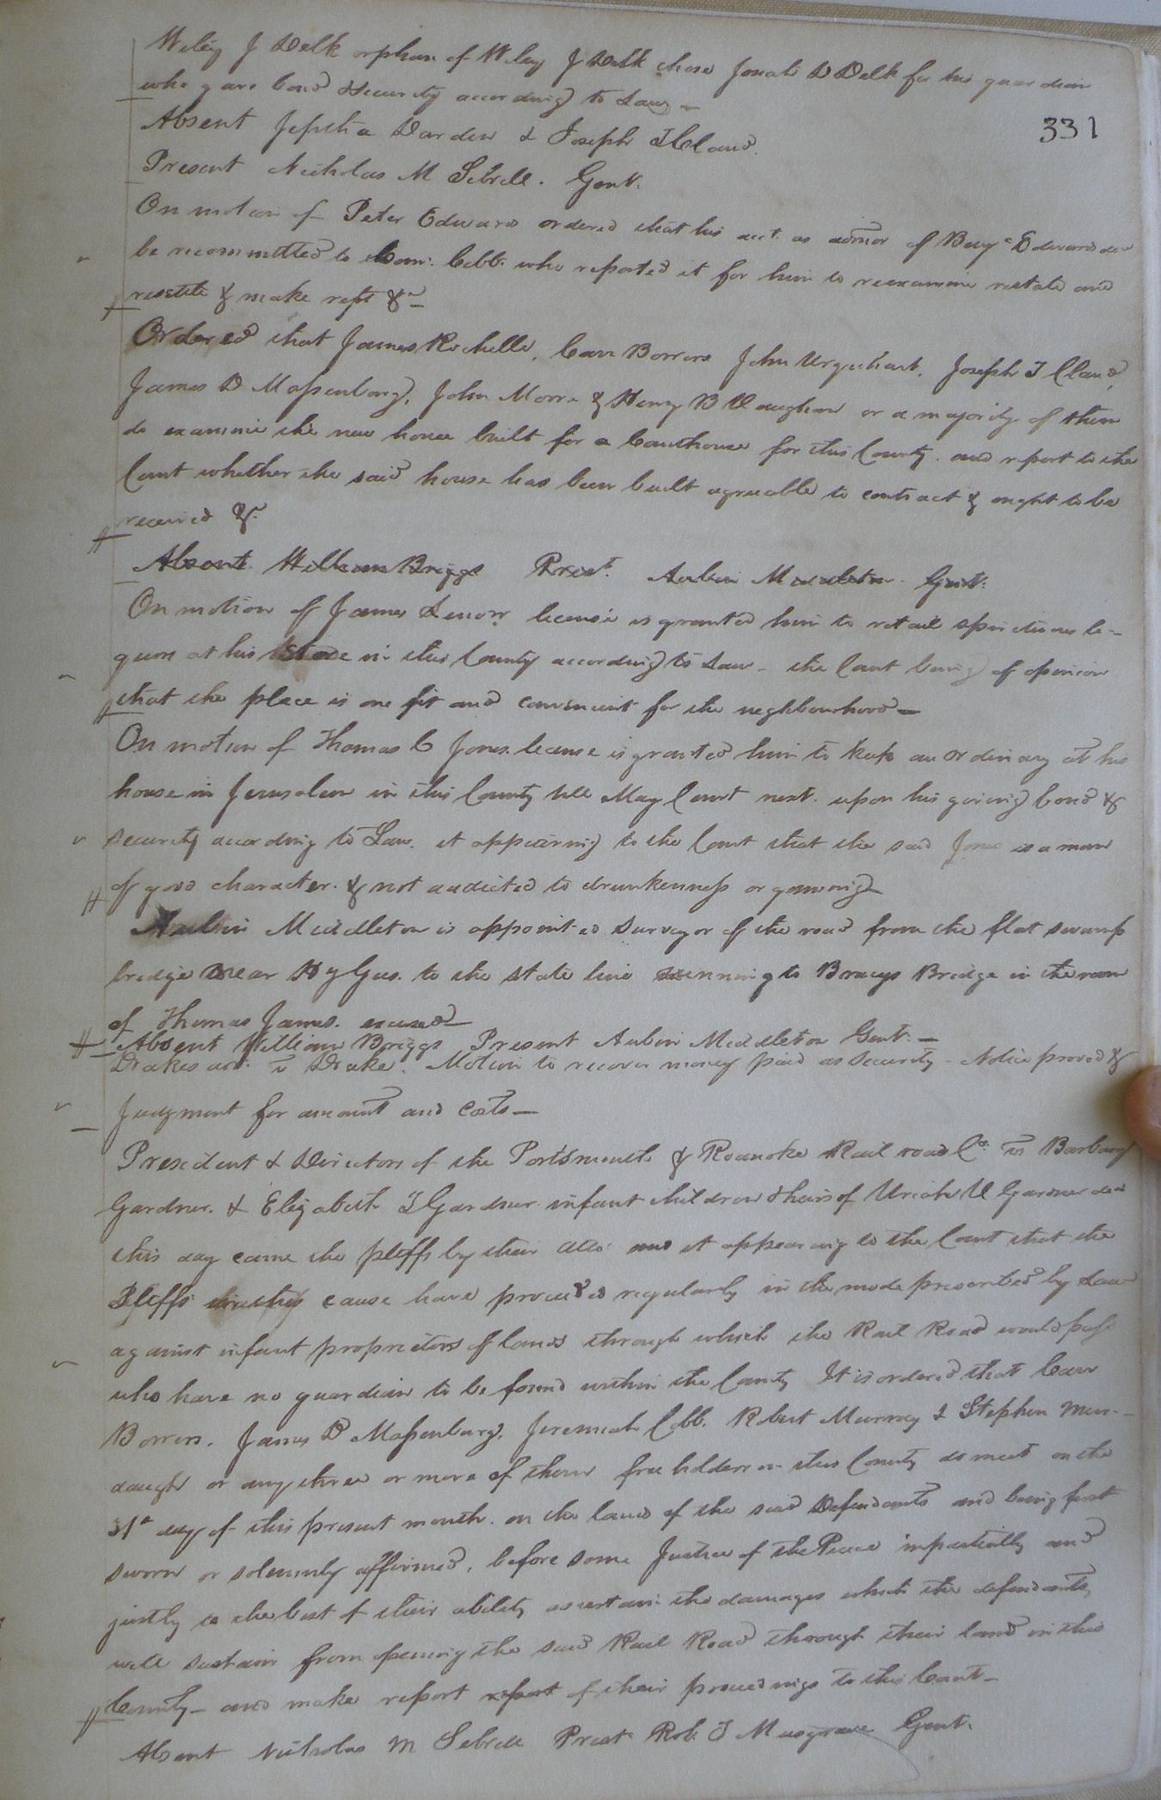 Wiley J Delk orphan of Wiley J Delk chose Josiah D Delk for his guardian
who gave bond & security according to Law —
Absent Jeptha Darden & Joseph T Claud.
331
Present Nicholas M Sebrell. Gent.
On motion of Peter Edwards ordered that his acct. as admor of Benja Edwards decd
be recommitted to Comr. Cobb. who reported it for him to reexamine restate and
resettle & make rept &c —
Ordered that James Rochelle, Carr Bowers John Urquhart, Joseph T Claud,
James D Massenburg, John Morre & Henry B Vaughan or a majority of them
do examine the new house built for a Courthouse for this County. and report to the
Court whether the said house has been built agreeable to contract & ought to be
received &c.
Absent. William Briggs Prest. Aubin Middleton. Gent.
On motion of James license is granted him to retail spirituous li-
quors at his Store in this County according to Law — the Court being of opinion
that the place is one fit and convenient for the neghbourhood —
On motion of Thomas C Jones license is granted him to keep an ordinary at his
house in Jerusalem in this County till May Court next. upon his giving bond &
security according to Law. it appearing to the Court that the said Jones is a man
of good character. & not addicted to drunkenness or gaming —
Aubin Middleton is appointed Surveyor of the road from the flat swamp
bridge near to the state line running to Braceys Bridge in the room
of Thomas James. excused —
Absent William Briggs Present Aubin Middleton Gent. —
Drakes adr. vs Drake. Motion to recover money paid as security - Notice proved &
Judgment for amount and costs —
President & Directors of the Portsmouth & Roanoke Rail road Co. vs Barbary
Gardner. & Elizabeth T Gardner infant children & heirs of Uriah U Gardner decd
this day came the pltffs by their atto and it appearing to the Court that the
Pltffs in this cause have proceeded regularly in the mode prescribed by Law
against infant proprietors of lands through which the Rail Road would pass
who have no guardian to be found within the County It is ordered that Carr
Bowers. James D Massenburg, Jeremiah Cobb. Robert Murray & Stephen Mur-
daugh or any three or more of them freeholders in this County do meet on the
31st day of this present month. on the land of the said Defendants and being first
sworn or solemnly affirmed, before some Justice of the Peace impartially and
justly to the best of their ability ascertain the damages which the defendants
will sustain from opening the said Rail Road through their land in this
County — and make report report of their proceedings to this Court —
Absent Nicholas M Sebrell Prest Rob. T Musgrave Gent.